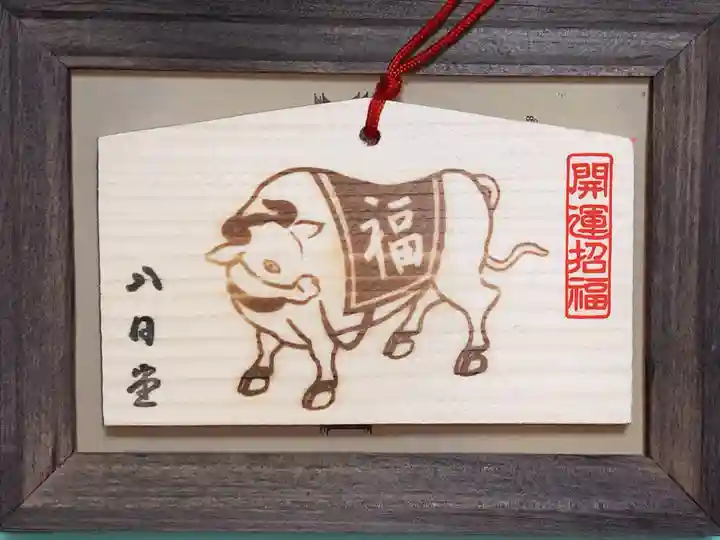 開運招福
福
八日堂